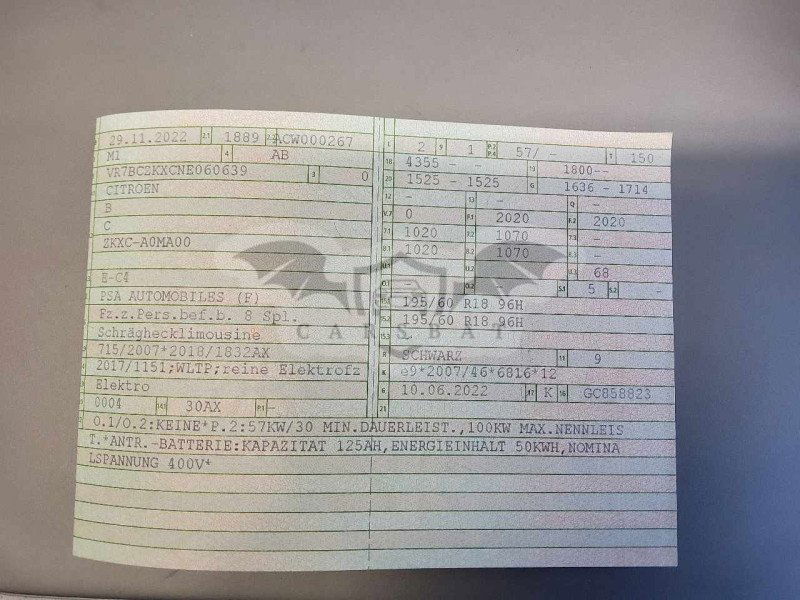 29.11.2022 2.1 1889 2.2 ACW000267
M1 4 AB
VR7BCZKXCNE060639 3 0
CITROEN
B
C
ZKXC-A0MA00
E-C4
PSA AUTOMOBILES (F)
Fz.z.Pers.bef.b. 8 Spl.
Schräghecklimousine
715/2007*2018/1832AX
2017/1151;WLTP;reine Elektrofz
Elektro
0004 14.1 30AX P.1 -
L 2 9 1 P.2 P.4 57/ - T 150
18 4355 - - 19 1800--
20 1525 - 1525 G 1636 - 1714
12 - 13 - Q -
V.7 0 F.1 2020 F.2 2020
7.1 1020 7.2 1070 7.3 -
8.1 1020 8.2 1070 8.3 -
U.3 68
S.1 5 S.2 -
15.1 195/60 R18 96H
15.2 195/60 R18 96H
15.3 -
R SCHWARZ 11 9
K e9*2007/46*6816*12
6 10.06.2022 17 K 16 GC858823
21
O.1/O.2:KEINE*P.2:57KW/30 MIN.DAUERLEIST.,100KW MAX.NENNLEIS
T.*ANTR.-BATTERIE:KAPAZITAT 125AH,ENERGIEINHALT 50KWH,NOMINA
LSPANNUNG 400V*
CARSBAT